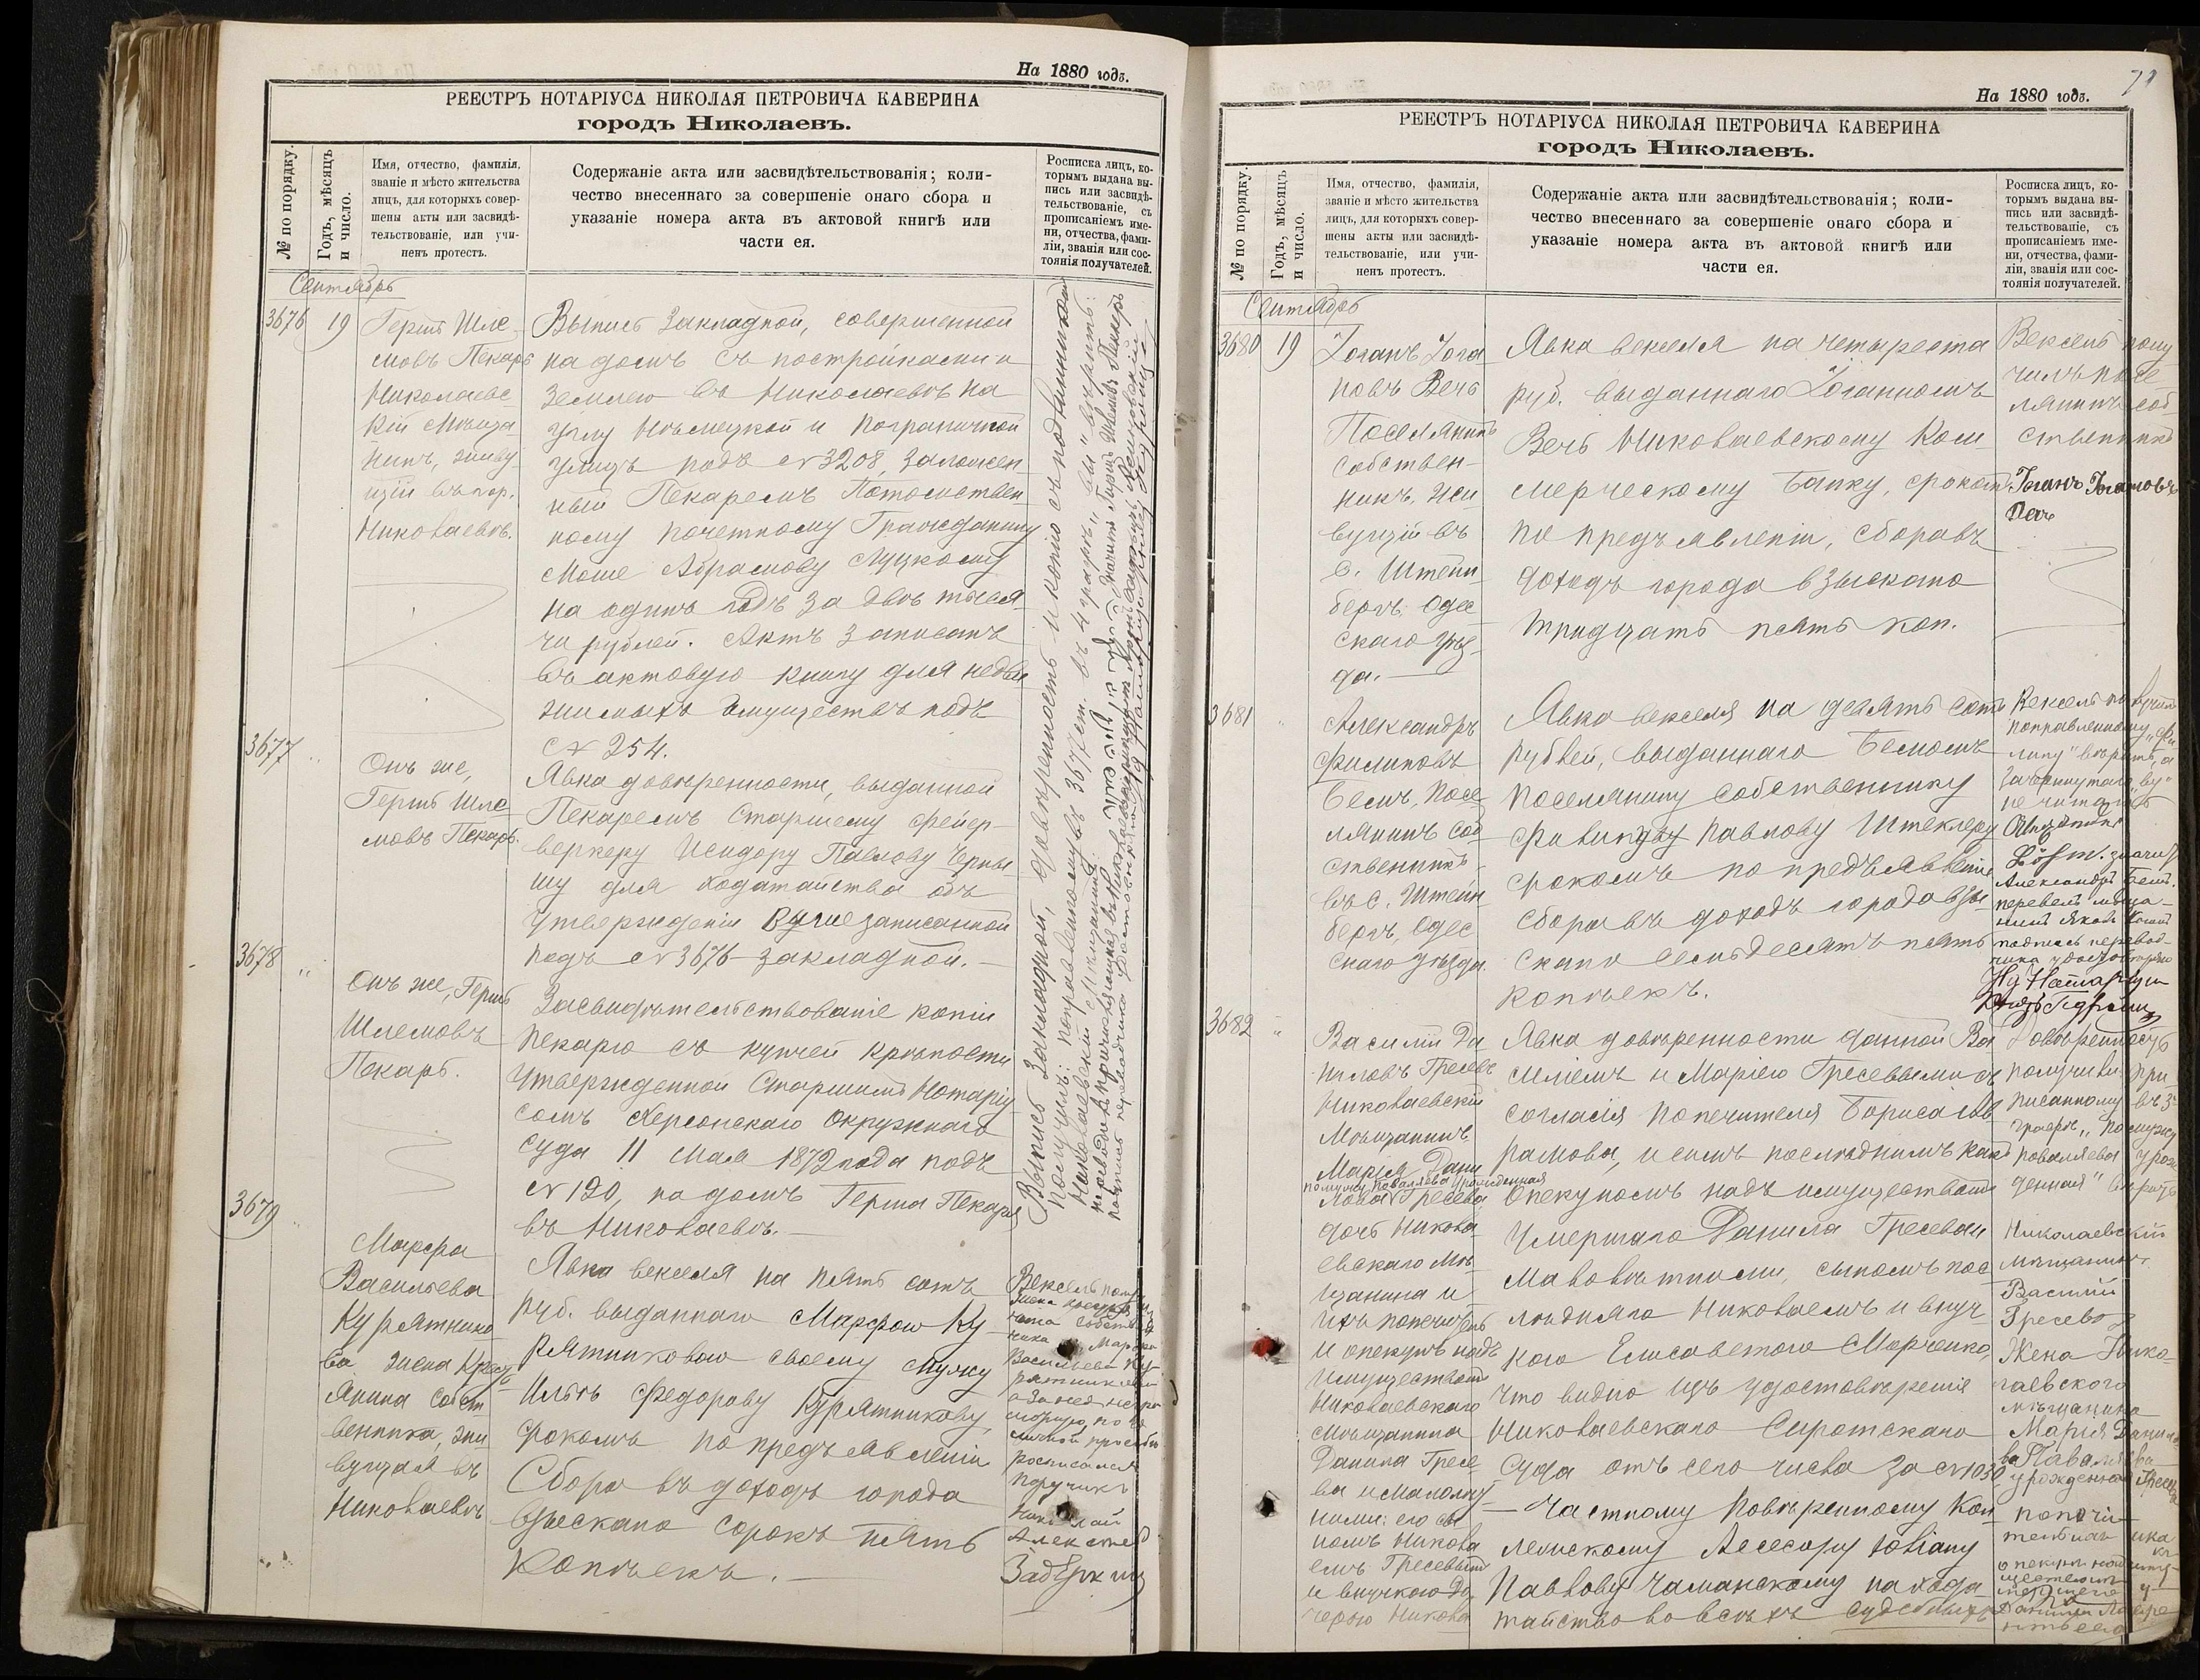 На 1880 годъ.
РЕЕСТРЪ НОТАРІУСА НИКОЛАЯ ПЕТРОВИЧА КАВЕРИНА
городъ Николаевъ.
№ по порядку.
Годъ, мѣсяцъ
и число.
Имя, отчество, фамилія,
званіе и мѣсто жительства
лицъ, для которыхъ совер-
шены акты или засвидѣ-
тельствованіе, или учи-
ненъ протестъ.
Содержаніе акта или засвидѣтельствованія; коли-
чество внесеннаго за совершеніе онаго сбора и
указаніе номера акта въ актовой книгѣ или
части ея.
Росписка лицъ, ко-
торымъ выдана вы-
пись или засвидѣ-
тельствованіе, съ
прописаніемъ име-
ни, отчества, фами-
ліи, званія или сос-
тоянія получателей.
Сентябрь
3676
19
Гершъ Шле-
мовъ Пекарь
Николаевс-
кій мѣща-
нинъ, живу-
щій въ гор.
Николаевѣ.
Выпись закладной, совершенной
на домъ съ постройками и
землею въ Николаевѣ на
углу Нѣмецкой и Пограничной
улицъ подъ № 3208, заложен-
ный Пекаремъ Потомствен-
ному почетному Гражданину
Моше Абрамову Луцкому
на одинъ годъ за двѣ тыся-
чи рублей. Актъ записанъ
въ актовую книгу для недви-
жимыхъ имуществъ подъ
№ 254.
3677
Онъ же,
Гершъ Шле-
мовъ Пекарь.
Явка довѣренности, выданной
Пекаремъ Старшему фейер-
веркеру Исидору Павлову Черны-
шу для ходатайства объ
утвержденіи вышезаписанной
подъ № 3676 закладной.
3678
"
Онъ же, Гершъ
Шлемовъ
Пекарь.
Засвидѣтельствованіе копіи
Пекарю съ купчей крѣпости
утвержденной Старшимъ Нотаріу-
сомъ Херсонскаго Окружнаго
Суда 11 мая 1872 года подъ
№ 120, на домъ Герша Пекаря
въ Николаевѣ.
Выпись закладной, довѣренность и копію съ подлинникомъ
получилъ: поправленному въ 3677 ст. въ 4 графѣ "вы" вѣрить:
Николаевскій мѣщанинъ:
3679
Марфа
Васильева
Курятнико-
ва жена Крест-
янина собст-
венника, жи-
вущая въ
Николаевѣ
Явка векселя на пять сотъ
руб. выданнаго Марфою Ку-
рятниковою своему мужу
Ильѣ Федорову Курятникову,
срокомъ по предъявленіи
Сбора въ доходъ города
взыскано сорокъ пять
копѣекъ.
Вексель
Васильева Ку-
росписался
Поручикъ
Николай
На 1880 годъ.
РЕЕСТРЪ НОТАРІУСА НИКОЛАЯ ПЕТРОВИЧА КАВЕРИНА
городъ Николаевъ.
№ по порядку.
Годъ, мѣсяцъ
и число.
Имя, отчество, фамилія,
званіе и мѣсто жительства
лицъ, для которыхъ совер-
шены акты или засвидѣ-
тельствованіе, или учи-
ненъ протестъ.
Содержаніе акта или засвидѣтельствованія; коли-
чество внесеннаго за совершеніе онаго сбора и
указаніе номера акта въ актовой книгѣ или
части ея.
Росписка лицъ, ко-
торымъ выдана вы-
пись или засвидѣ-
тельствованіе, съ
прописаніемъ име-
ни, отчества, фами-
ліи, званія или сос-
тоянія получателей.
Сентябрь
3680
19
Іоганъ Іога-
новъ Вечъ
Поселянинъ
собствен-
никъ, жи-
вущій въ
с. Штейн-
бергъ Одес-
скаго уѣз-
да.
Явка векселя на четыреста
руб. выданнаго Іоганномъ
Вечъ Николаевскому Ком-
мерческому Банку, срокомъ
по предъявленіи, сбора въ
доходъ города взыскано
тридцать пять коп.
Вексель полу-
чилъ посе-
лянинъ соб-
ственникъ
Іоганъ Іогановъ
Вечъ
3681
"
Александръ
Филиповъ
Бемъ, посе-
лянинъ соб-
ственникъ
въ с. Штейн-
бергъ, Одес-
скаго уѣзда.
Явка векселя на девять сотъ
рублей, выданнаго Бемомъ
поселянину собственнику
Павлову Штеклеру
срокомъ по предъявленіи
Сбора въ доходъ города взы-
скано семьдесятъ пять
копѣекъ.
Вексель получилъ
поправленному "Фи-
липу" вѣрить, а
зачеркнутаго "ву"
не читать
Александръ Бемъ.
перевелъ мѣща-
нинъ Яковъ
подпись перевод-
чика удостовѣряю
3682
"
Василій Да-
ниловъ Гресевъ
Николаевскій
Мѣщанинъ
Марія Дани-
по мужу Поваляева урожденная
лова Гресева,
дочь Никола-
евскаго Мѣ-
щанина и
ихъ попечитель
и опекунъ надъ
имуществомъ
Николаевскаго
мѣщанина
Данила Гресе-
ва и малолѣт-
ними: его сы-
номъ Никола-
емъ Гресевымъ
и внучкою До-
черью Никола-
Явка довѣренности данной Ва-
силіемъ и Маріею Гресевыми съ
согласія попечителя Бориса Ав-
рамова, и симъ послѣднимъ какъ
Опекуномъ надъ имуществомъ
умершаго Данила Гресева и
малолѣтними, сыномъ пос-
лѣдняго Николаемъ и внуч-
кою Елисаветою Марченко,
что видно изъ удостовѣренія
Николаевскаго Сиротскаго
Суда отъ сего числа за № 1030
— Частному повѣренному Кол-
лежскому Асессору Юліану
Павлову Чаманскому на хода-
тайство во всѣхъ судебныхъ
Довѣренность
получили при-
писанному въ 3
графѣ "по мужу
Поваляева урож-
денная" вѣрить
Николаевскій
мѣщанинъ
Василій
Гресевъ
Жена Нико-
лаевскаго
мѣщанина
Марія Данило-
ва Паваляева
урожденная Гресева